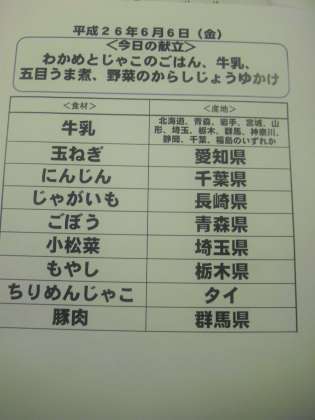 平成26年6月6日(金)
<今日の献立>
わかめとじゃこのごはん、牛乳、
五目うま煮、野菜のからしじょうゆかけ
<食材> <産地>
牛乳 北海道、青森、岩手、宮城、山
形、埼玉、栃木、群馬、神奈川、
静岡、千葉、福島のいずれか
玉ねぎ 愛知県
にんじん 千葉県
じゃがいも 長崎県
ごぼう 青森県
小松菜 埼玉県
もやし 栃木県
ちりめんじゃこ タイ
豚肉 群馬県